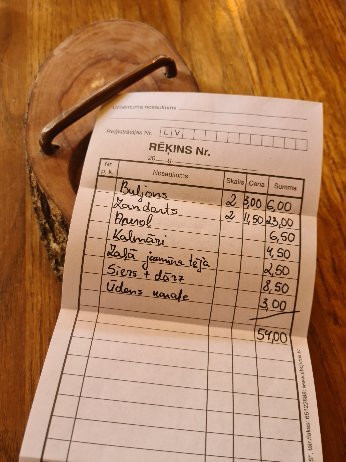 Uzņēmuma nosaukums
Reģistrācijas Nr. LV
RĒĶINS Nr.
20 . g.
Nr. p. k. Nosaukums Skaits Cena Summa
Buljons 2 3,00 6,00
Zandarts 2 11,50 23,00
Aperol 6,50
Kalmāri 4,50
Zaļā jasmīna tēja 2,50
Siers + dārz 8,50
Ūdens karafe 3,00
54,00